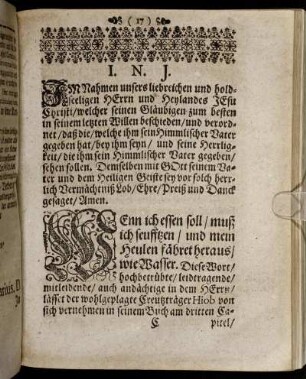 ( 17 )
I. N. J.
IM Nahmen unsers liebreichen und hold-
seeligen HErrn und Heylandes JEsu
Christi/ welcher seinen Gläubigen zum besten
in seinem letzten Willen beschieden/ und verord-
net/ daß die/ welche ihm sein Himmlischer Vater
gegeben hat/ bey ihm seyn/ und seine Herrlig-
keit/ die ihm sein Himmlischer Vater gegeben/
sehen sollen. Demselben mit GOtt seinem Va-
ter und dem Heiligen Geiste sey vor solch herr-
lich Vermächtniß Lob/ Ehre/ Preiß und Danck
gesaget/ Amen.
WEnn ich essen soll/ muß
ich seufftzen/ und mein
Heulen fähret heraus/
wie Wasser. Diese Wort/
hochbetrübte/ leidtragende/
mitleidende/ auch andächtige in dem HErrn/
lässet der wohlgeplagte Creutzträger Hiob von
sich vernehmen in seinem Buch am dritten Ca-
C pitel/